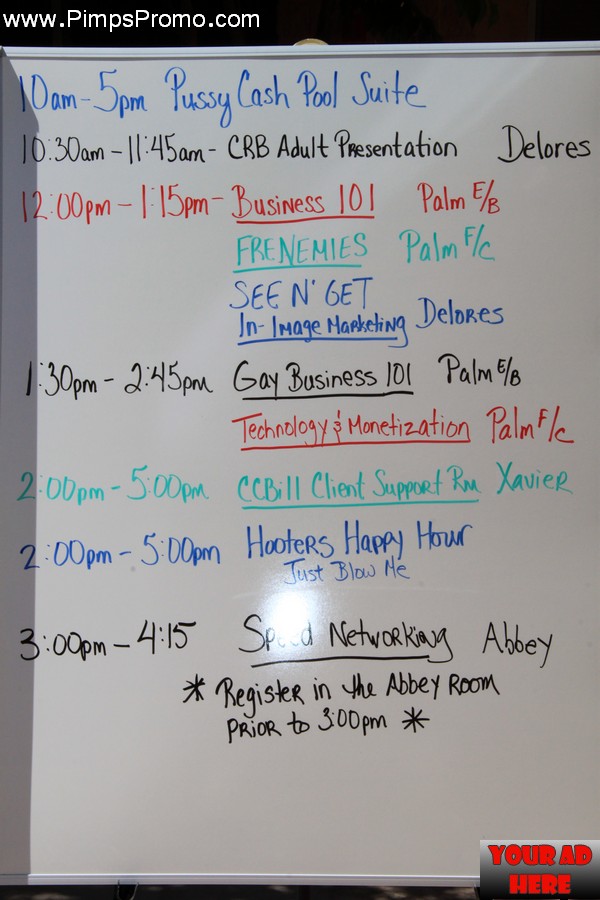 www.PimpsPromo.com
10am - 5pm Pussy Cash Pool Suite
10:30am - 11:45am - CRB Adult Presentation Delores
12:00pm - 1:15pm - Business 101 Palm E/B
FRENEMIES Palm F/C
SEE N' GET
In-Image Marketing Delores
1:30pm - 2:45pm Gay Business 101 Palm E/B
Technology & Monetization Palm F/C
2:00pm - 5:00pm CCBill Client Support Rm Xavier
2:00pm - 5:00pm Hooters Happy Hour
Just Blow Me
3:00pm - 4:15 Speed Networking Abbey
* Register in the Abbey Room
prior to 3:00pm *
YOUR AD
HERE